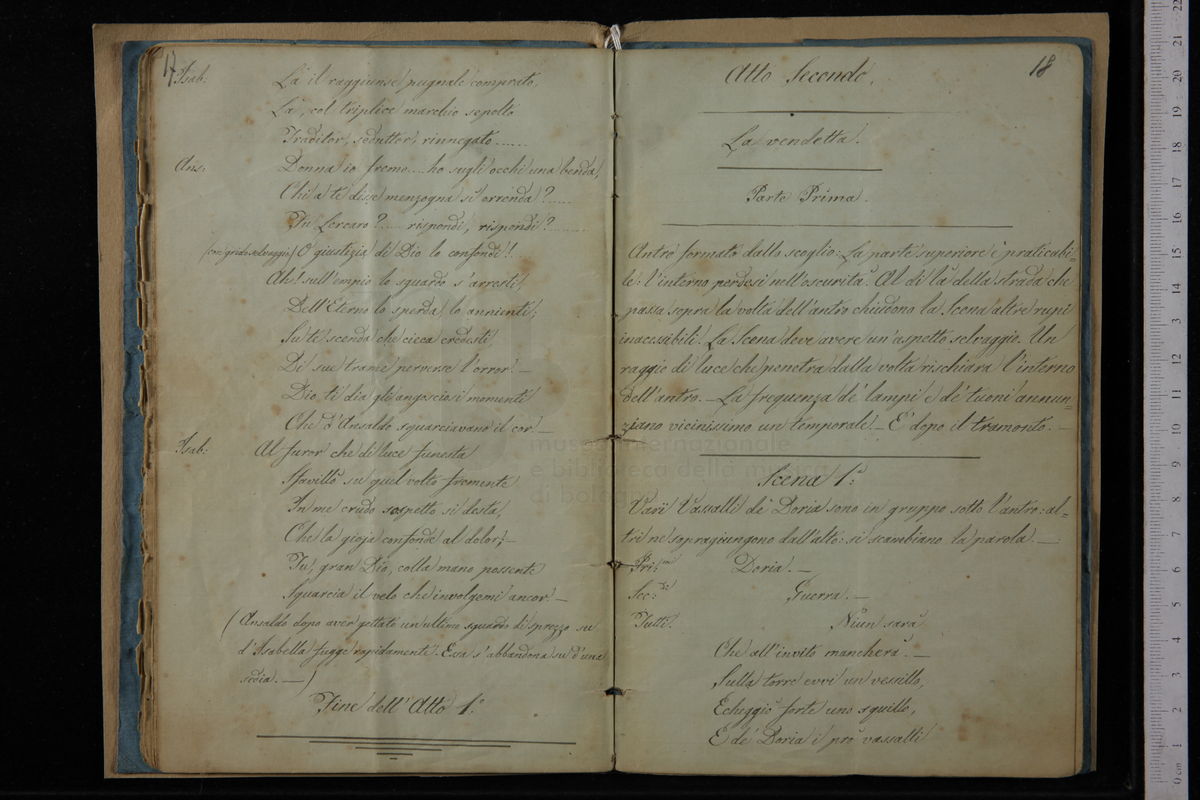 17
Isab: Là il raggiunse pugnale comprato,
Là, col triplice marchio sepolto
Traditor, seduttor, rinnegato......
Ans: Donna io fremo.... ho sugli occhi una benda,
Chi a te disse menzogna sì orrenda?......
Tu Lercaro?...... rispondi, rispondi?........
(con grido selvaggio) O giustizia di Dio lo confondi!
Ah! sull'empio lo sguardo s'arresti,
Dell'Eterno lo sperda, lo annienti;
Su te scenda che cieca credesti,
Di sue trame perverse l'orror! —
Dio ti dia gli angosciosi momenti
Che d'Ansaldo squarciavano il cor. —
Isab: Al furor che di luce funesta
Sfavillò su quel volto fremente
In me crudo sospetto si desta,
Che la gioja confonde al dolor; —
Tu, gran Dio, colla mano possente
Squarcia il velo che involgemi ancor. —
(Ansaldo dopo aver gettato un ultimo sguardo di sprezzo su
d'Isabella fugge rapidamente. Essa s'abbandona su d'una
sedia. —)
Fine dell'Atto 1º
18
Atto Secondo.
La vendetta.
Parte Prima.
Antro formato dallo scoglio: La parte superiore è praticabi-
le: l'interno perdesi nell'oscurità. Al di là della strada che
passa sopra la volta dell'antro chiudono la Scena altre rupi
inacessibili. La Scena deve avere un'aspetto selvaggio. Un
raggio di luce che penetra dalla volta rischiara l'interno
dell'antro. — La frequenza de' lampi e de' tuoni annun-
ziano vicinissimo un temporale. — È dopo il tramonto. —
Scena 1ª
Varii Vassalli de' Doria sono in gruppo sotto l'antro: al-
tri ne sopragiungono dall'alto: si scambiano la parola. —
Pri:mi Doria. —
Sec:di Guerra. —
Tutti. Niun sarà
Che all'invito mancherà. —
Sulla torre evvi un vessillo,
Echeggiò forte uno squillo,
E de' Doria i prò vassalli
museo internazionale
e biblioteca della musica
di bologna